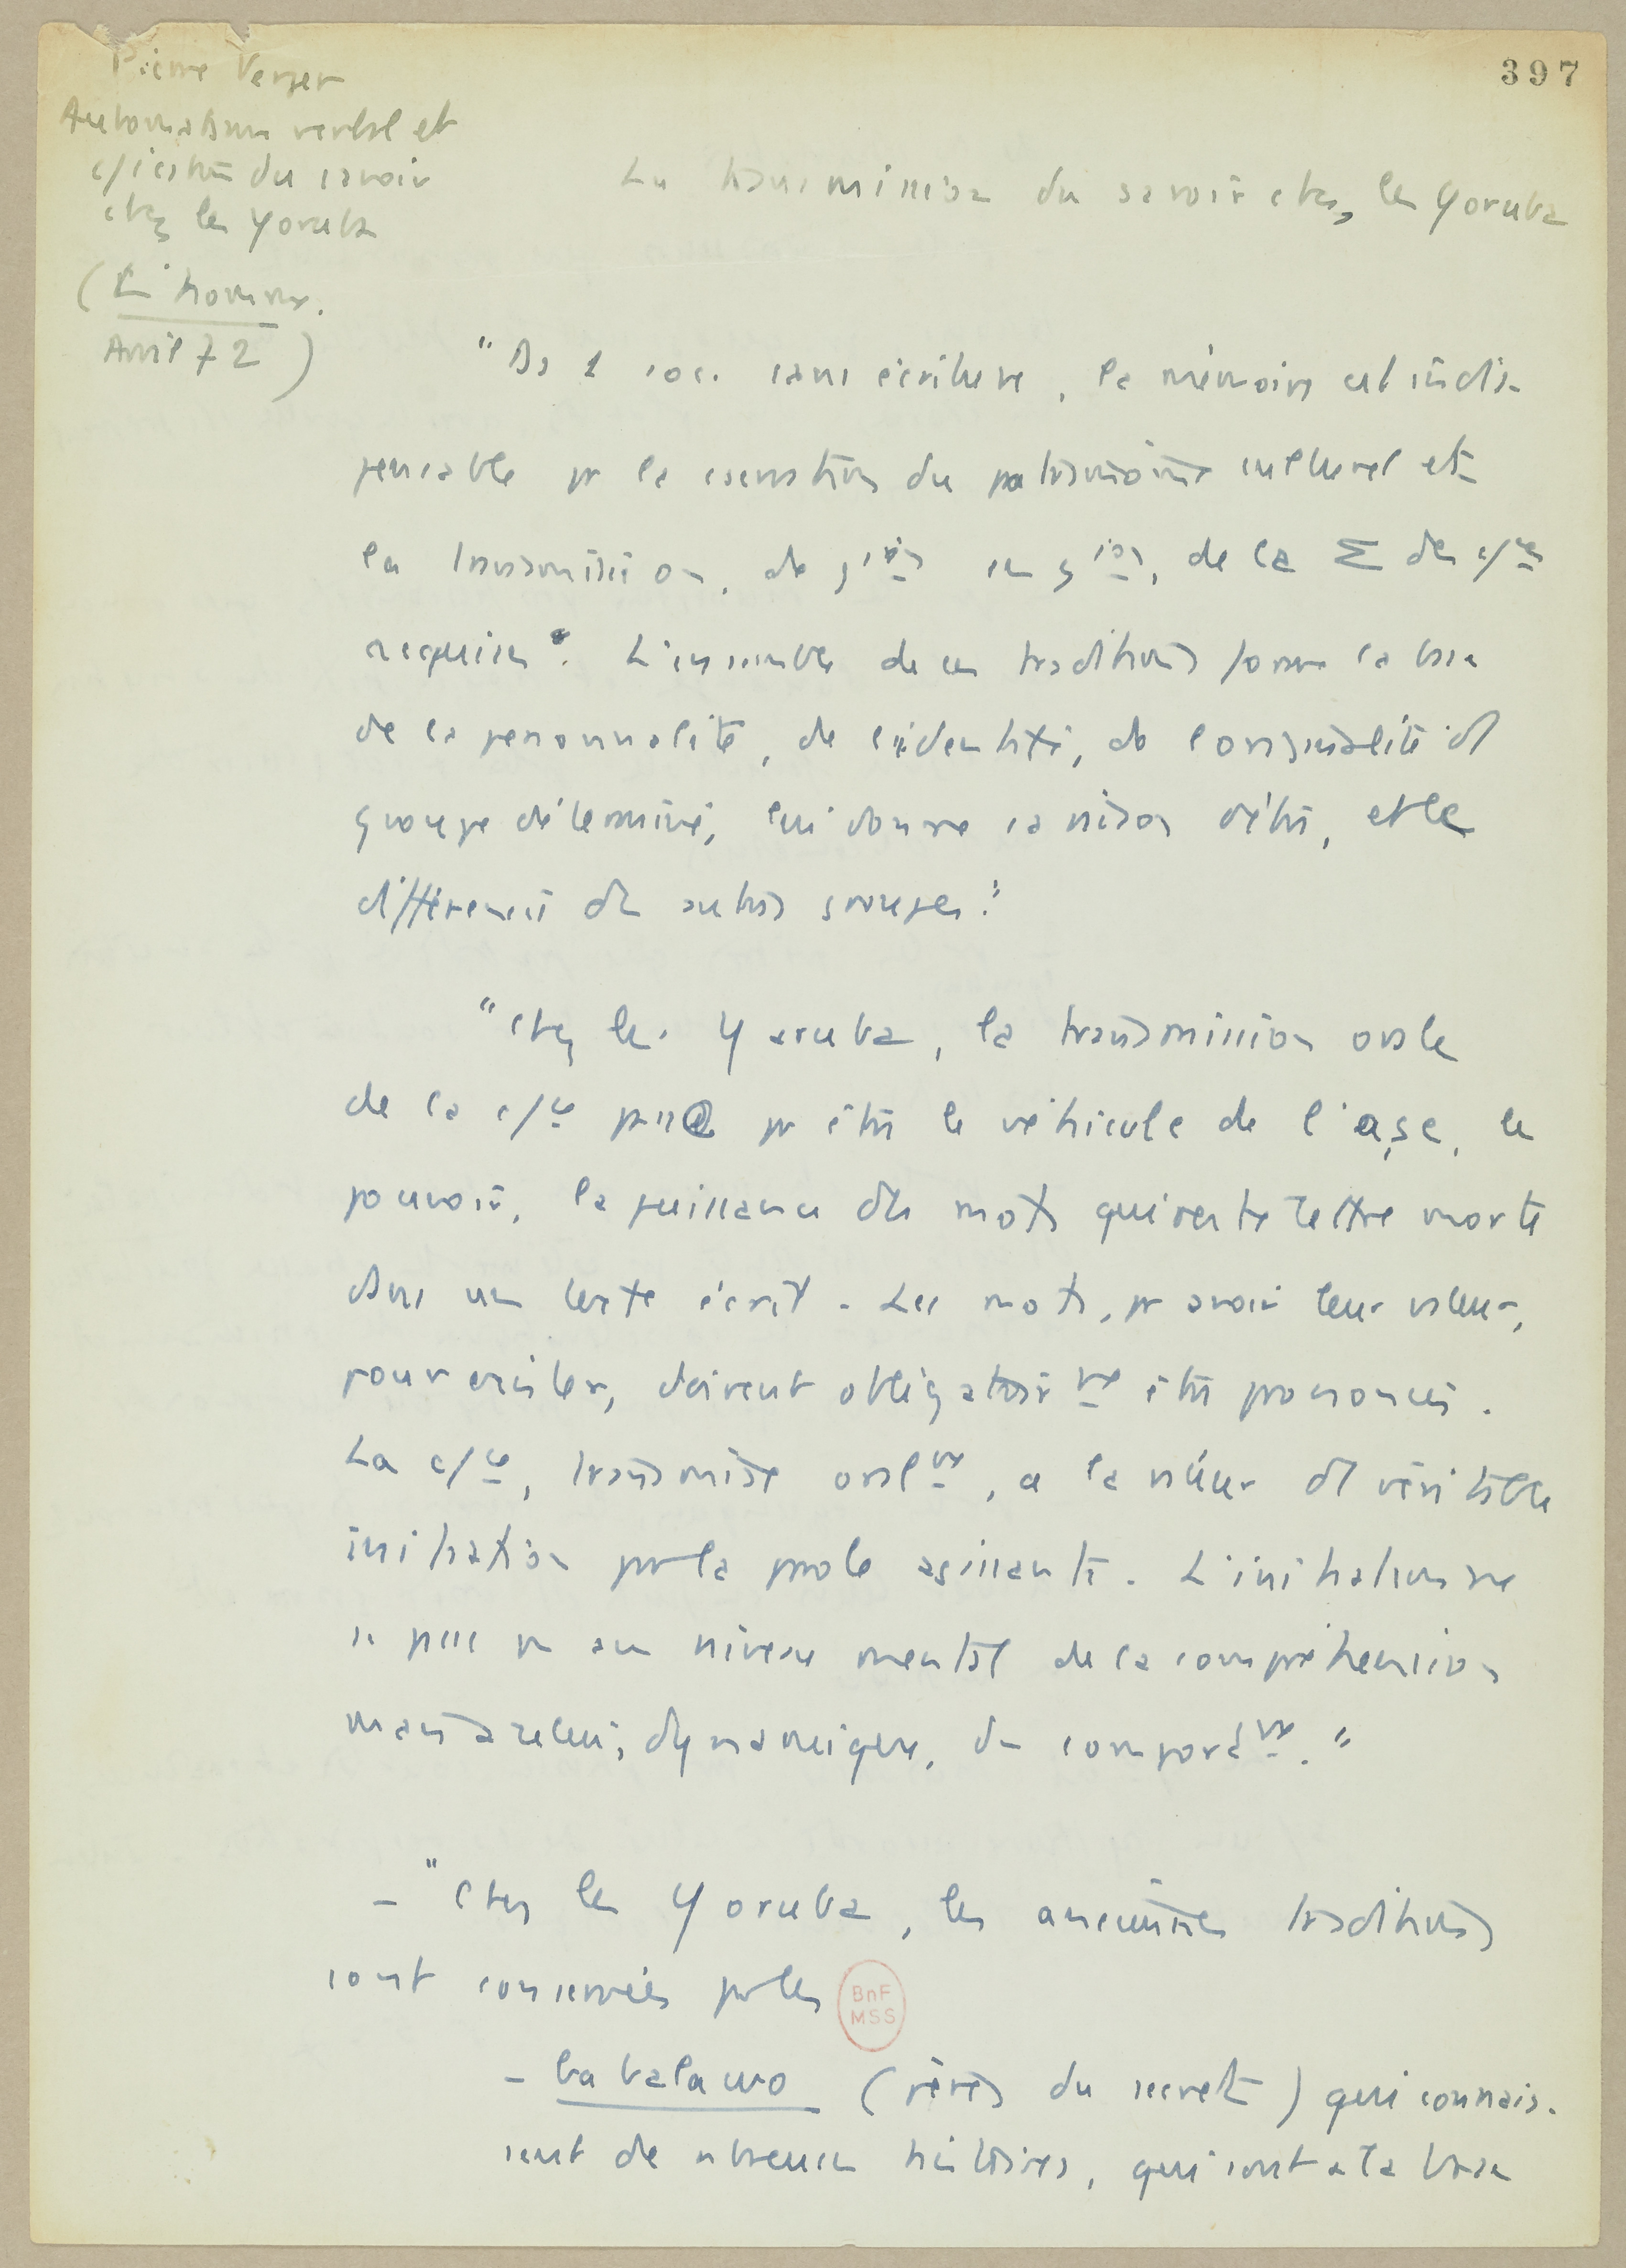 397
Pierre Verger
Automatisme verbal et
c/ication du savoir
chez les Yoruba
(L'homme.
Avril 72)
La transmission du savoir chez les Yoruba
"Ds 1 soc. sans écriture, la mémoire est indis-
pensable pr la conservation du patrimoine culturel et
la transmission, de g^ion en g^ion, de la Σ des c/ces
acquises". L'ensemble de ces traditions forme la base
de la personnalité, de l'identité, de l'originalité d'1
groupe déterminé, lui donne sa raison d'être, et le
différencie des autres groupes."
"Chez les Yoruba, la transmission orale
de la c/ce passe pr être le véhicule de l'aṣe, le
pouvoir, la puissance des mots qui reste lettre morte
dans un texte écrit. Les mots, pr avoir leur valeur,
pour exister, doivent obligatoir^mt être prononcés.
La c/ce, transmise oral^mt, a la valeur d'1 véritable
initiation par la parole agissante. L'initiation ne
se passe pas au niveau mental de la compréhension
mais à celui, dynamique, du comport^mt."
- "Chez les Yoruba, les anciennes traditions
sont conservées par les
BnF
MSS
- babalawo (pères du secret) qui connais-
sent de nbreuses histoires, qui sont à la base